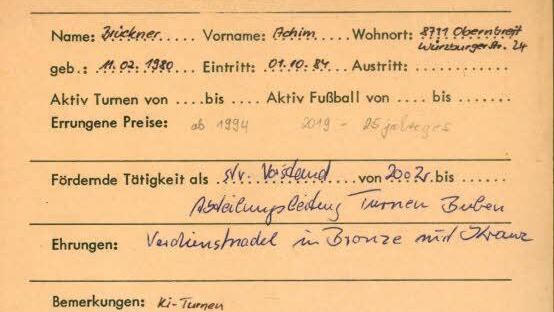 Name: Brückner..... Vorname: Achim..... Wohnort: 8711 Obernbreit
Würzburgerstr. 24
geb.: 11.02.1980... Eintritt: 01.10.84. Austritt: ............
Aktiv Turnen von ....bis .... Aktiv Fußball von .... bis .......
Errungene Preise: ab 1994 2019 - 25 jähriges
Fördernde Tätigkeit als stv. Vorstand von 2002 bis ......
Abteilungsleitung Turnen Buben
Ehrungen: Verdienstnadel in Bronze mit Kranz
Bemerkungen: Ki-Turnen